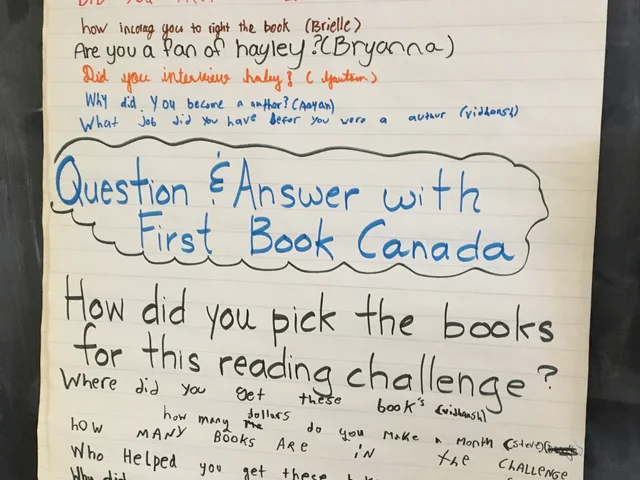 how incorag you to right the book (Brielle)
Are you a fan of hayley? (Bryanna)
Did you interview haley? (Gautam)
Why did you become a author? (Aayan)
What job did you have befor you were a authur (vidhansh)
Question & Answer with
First Book Canada
How did you pick the books
for this reading challenge?
Where did you get these book's (vidhansh)
how many dollars do you make a month (steve)
HOW MANY BOOKS ARE IN the CHALLENGE
Who Helped you get these
Why did